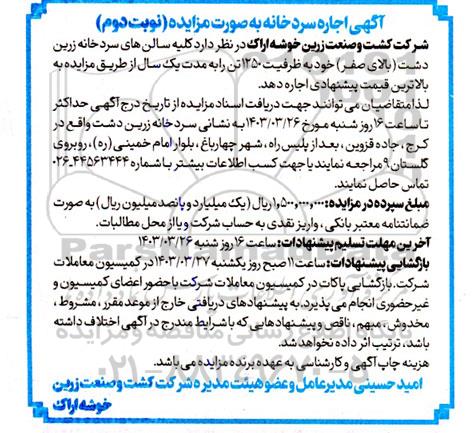 آگهی اجاره سردخانه به صورت مزایده (نوبت دوم)
شرکت کشت و صنعت زرین خوشه اراک در نظر دارد کلیه سالن های سردخانه زرین
دشت (بالای صفر) خود به ظرفیت ۱۲۵۰ تن را به مدت یک سال از طریق مزایده به
بالاترین قیمت پیشنهادی اجاره دهد.
لذا متقاضیان می توانند جهت دریافت اسناد مزایده از تاریخ درج آگهی حداکثر
تا ساعت ۱۶ روز شنبه مورخ ۱۴۰۳/۰۳/۲۶ به نشانی سردخانه زرین دشت واقع در
کرج، جاده قزوین، بعد از پلیس راه، شهر چهارباغ، بلوار امام خمینی (ره)، روبروی
گلستان ۹ مراجعه نمایند یا جهت کسب اطلاعات بیشتر با شماره ۰۲۶.۴۴۵۶۳۴۴۴
تماس حاصل نمایند.
مبلغ سپرده در مزایده: ۱,۵۰۰,۰۰۰,۰۰۰ ریال (یک میلیارد و پانصد میلیون ریال) به صورت
ضمانتنامه معتبر بانکی، واریز نقدی به حساب شرکت و یا از محل مطالبات.
آخرین مهلت تسلیم پیشنهادات: ساعت ۱۶ روز شنبه ۱۴۰۳/۰۳/۲۶
بازگشایی پیشنهادات: ساعت ۱۱ صبح روز یکشنبه ۱۴۰۳/۰۳/۲۷ در کمیسیون معاملات
شرکت. بازگشایی پاکات در کمیسیون معاملات شرکت با حضور اعضای کمیسیون و
غیر حضوری انجام می پذیرد. به پیشنهادهای دریافتی خارج از موعد مقرر، مشروط،
مخدوش، مبهم، ناقص و پیشنهادهایی که با شرایط مندرج در آگهی اختلاف داشته
باشد، ترتیب اثر داده نخواهد شد.
هزینه چاپ آگهی و کارشناسی به عهده برنده مزایده می باشد.
امید حسینی مدیرعامل و عضو هیئت مدیره شرکت کشت و صنعت زرین
خوشه اراک